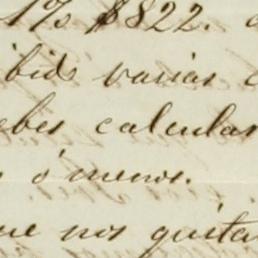 1% $822.
ibido varias
ebes calcular
ó menos.
ue nos quita